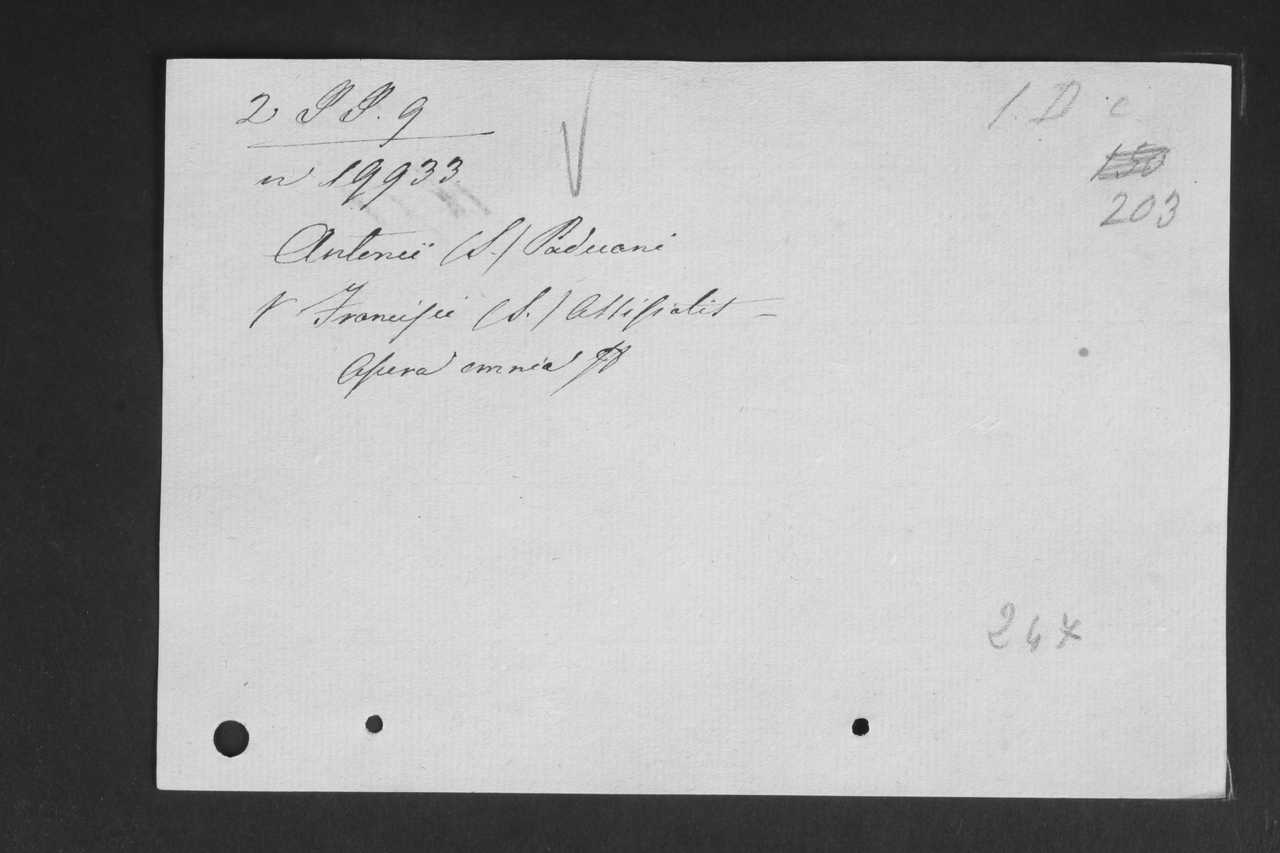 2 P P. 9
1. D c
150
n 19933
203
Antonii (S.) Paduani
V Francisci (S.) Assisiatis –
Opera omnia
247